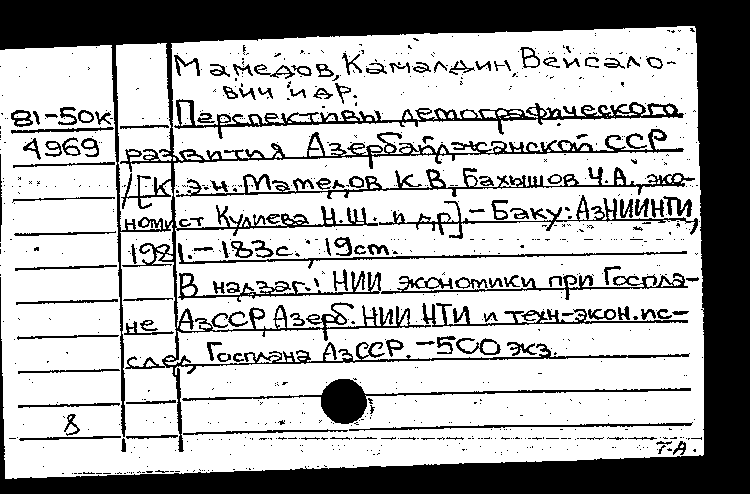 Мамедов, Камалдин Вейсало-
вич и др.
81-50к Перспективы демографического
4969 развития Азербайджанской ССР
/[К.э.н. Мамедов К.В., Бахышов Ч.А., эко-
номист Кулиева Н.Ш. и др.].-Баку: АзНИИНТИ,
1981.-183с.; 19см.
В надзаг.: НИИ экономики при Госпла-
не АзССР, Азерб. НИИ НТИ и техн.-экон. ис-
след. Госплана АзССР.-500 экз.
8
Т-А.